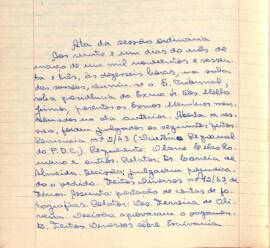 Ata da sessão ordinária
Aos vinte e um dias do mês de
março de um mil novecentos e sessen-
ta e três, às dezesseis horas, na sala
das sessões, reuniu-se o E. Tribunal,
sob a presidência do Exmo Sr. Des. Mello
presentes os Exmos. Membros
da ata anterior. Aberta a ses-
são, foram julgados os seguintes feitos:
nº 2/63 (Diretório Regional
do P.D.C.) Requerente: Plano
e outros. Relator: Dr. Correia de
Almeida. Decisão: julgaram prejudica-
do o pedido. Feitos Diversos nº 12/63, de
Assunto: prestação de contas de fo-
tografias. Relator: Des. Ferreira de Oli-
veira. Decisão: aprovaram o pagamen-
to. Feitos Diversos sôbre Escrivania